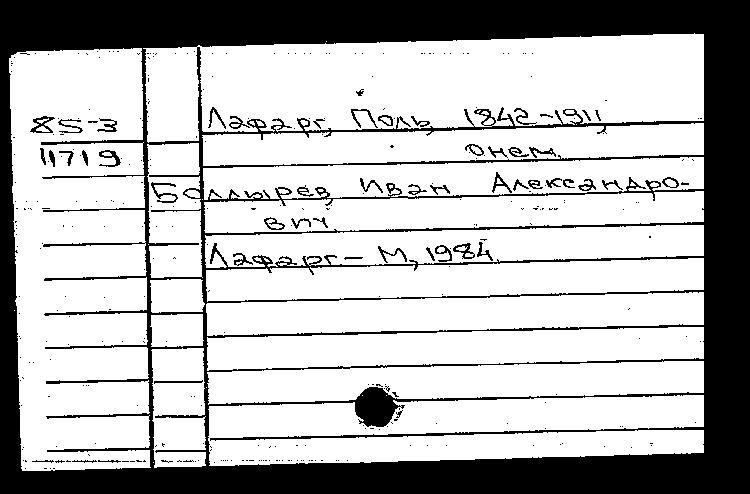 85-3
11719
Лафарг, Поль, 1842-1911,
о нем.
Болдырев, Иван Александро-
вич.
Лафарг.- М, 1984.